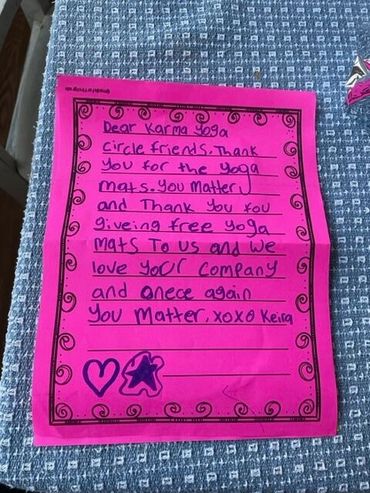 Dear Karma Yoga
circle friends. Thank
You for the yoga
mats. You Matter
and Thank You fou
giveing free yoga
Mats To us and we
love your company
and onece again
You Matter. xoxo Keira